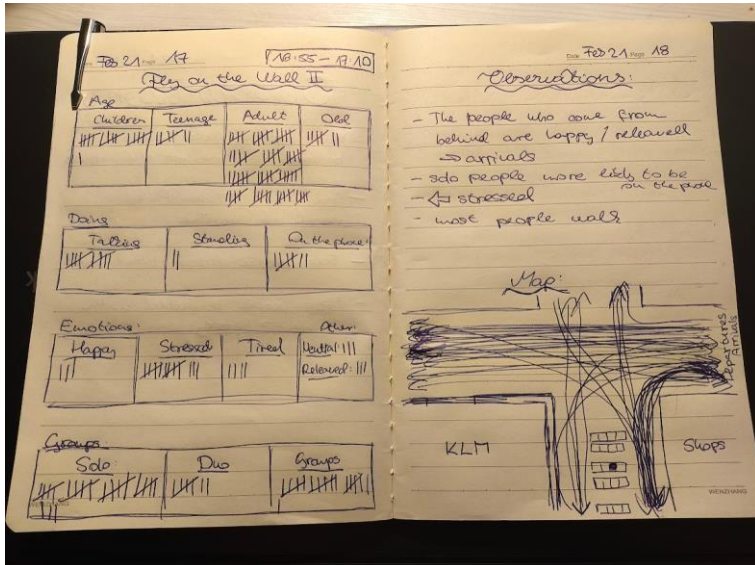 Feb 21 Page 17
18:55 - 19:10
Fly on the Wall II
Age
Children Teenage Adult Old
Doing
Talking Standing On the phone:
Emotions: Other:
Happy Stressed Tired Neutral: III
Released: III
Groups
Solo: Duo Groups
Date Feb 21 Page 18
Observations:
- The people who come from
behind are happy / released
→ arrivals
- solo people more likely to be
on the phone
- ⇦ stressed
- most people walk
Map:
Departures
Arrivals
KLM
Shops
WENZHANG